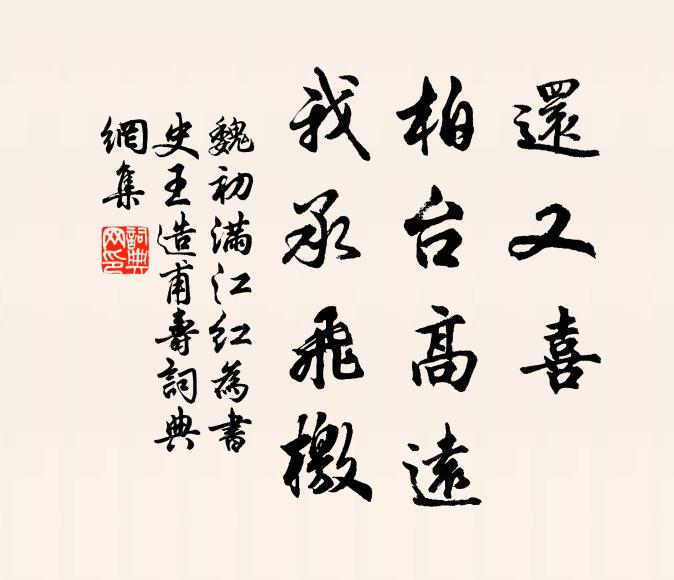 還又喜
柏台高遠
我承飛檄
魏初滿江紅為書
史王造甫壽詞典
網集
詞典網印